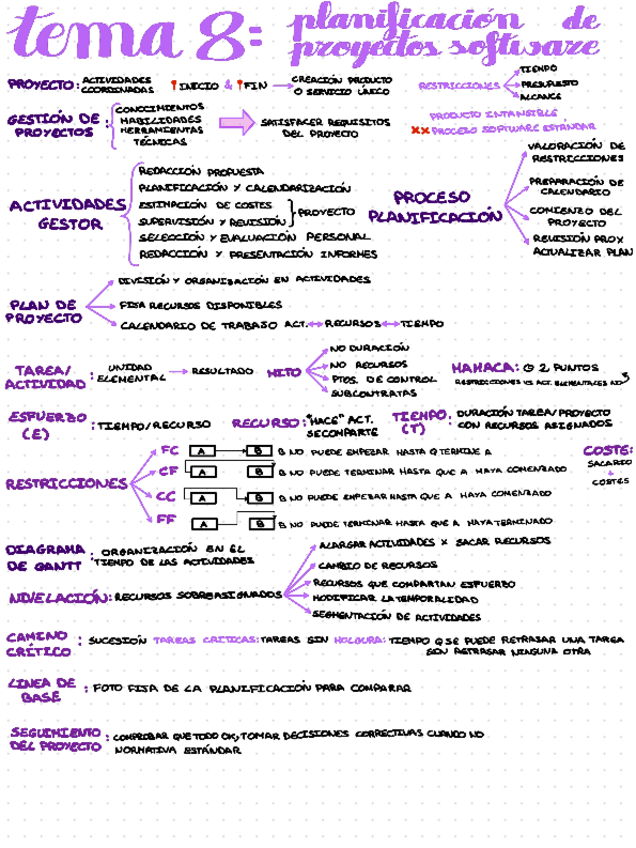 tema 8: planificación de
proyectos software
PROYECTO: ACTIVIDADES COORDINADAS INICIO & FIN → CREACIÓN PRODUCTO O SERVICIO ÚNICO
RESTRICCIONES
TIEMPO
PRESUPUESTO
ALCANCE
GESTIÓN DE PROYECTOS:
CONOCIMIENTOS
HABILIDADES
HERRAMIENTAS
TÉCNICAS
SATISFACER REQUISITOS
DEL PROYECTO
PRODUCTO INTANGIBLE
XX PROCESO SOFTWARE ESTÁNDAR
ACTIVIDADES GESTOR
REDACCIÓN PROPUESTA
PLANIFICACIÓN Y CALENDARIZACIÓN
ESTIMACIÓN DE COSTES
SUPERVISIÓN Y REVISIÓN
} PROYECTO
SELECCIÓN Y EVALUACIÓN PERSONAL
REDACCIÓN Y PRESENTACIÓN INFORMES
PROCESO PLANIFICACIÓN
VALORACIÓN DE RESTRICCIONES
PREPARACIÓN DE CALENDARIO
COMIENZO DEL PROYECTO
REVISIÓN PROX
ACTUALIZAR PLAN
PLAN DE PROYECTO
DIVISIÓN Y ORGANISACIÓN EN ACTIVIDADES
FIJA RECURSOS DISPONIBLES
CALENDARIO DE TRABAJO ACT. ↔ RECURSOS ↔ TIEMPO
TAREA/
ACTIVIDAD: UNIDAD ELEMENTAL → RESULTADO
HITO
NO DURACIÓN
NO RECURSOS
PTOS. DE CONTROL
SUBCONTRATAS
HAMACA: 2 PUNTOS
RESTRICCIONES VS ACT. ELEMENTALES NO
ESFUERZO (E): TIEMPO/RECURSO
RECURSO: "HACE" ACT.
SE COMPARTE
TIEMPO (T): DURACIÓN TAREA/PROYECTO
CON RECURSOS ASIGNADOS
RESTRICCIONES
FC A B B NO PUEDE EMPEZAR HASTA Q TERMINE A
CF A B B NO PUEDE TERMINAR HASTA QUE A HAYA COMENZADO
CC A B B NO PUEDE EMPEZAR HASTA QUE A HAYA COMENZADO
FF A B B NO PUEDE TERMINAR HASTA QUE A HAYA TERMINADO
COSTE:
COSTES
DIAGRAMA DE GANTT: ORGANIZACIÓN EN EL
TIEMPO DE LAS ACTIVIDADES
NIVELACIÓN: RECURSOS SOBREASIGNADOS
ALARGAR ACTIVIDADES X SACAR RECURSOS
CAMBIO DE RECURSOS
RECURSOS QUE COMPARTAN ESFUERZO
MODIFICAR LA TEMPORALIDAD
SEGMENTACIÓN DE ACTIVIDADES
CAMINO CRÍTICO: SUCESIÓN TAREAS CRITICAS: TAREAS SIN HOLGURA: TIEMPO Q SE PUEDE RETRASAR UNA TAREA
SIN RETRASAR NINGUNA OTRA
LINEA DE BASE: FOTO FIJA DE LA PLANIFICACIÓN PARA COMPARAR
SEGUIMIENTO DEL PROYECTO: COMPROBAR QUE TODO OK, TOMAR DECISIONES CORRECTIVAS CUANDO NO
NORMATIVA ESTÁNDAR